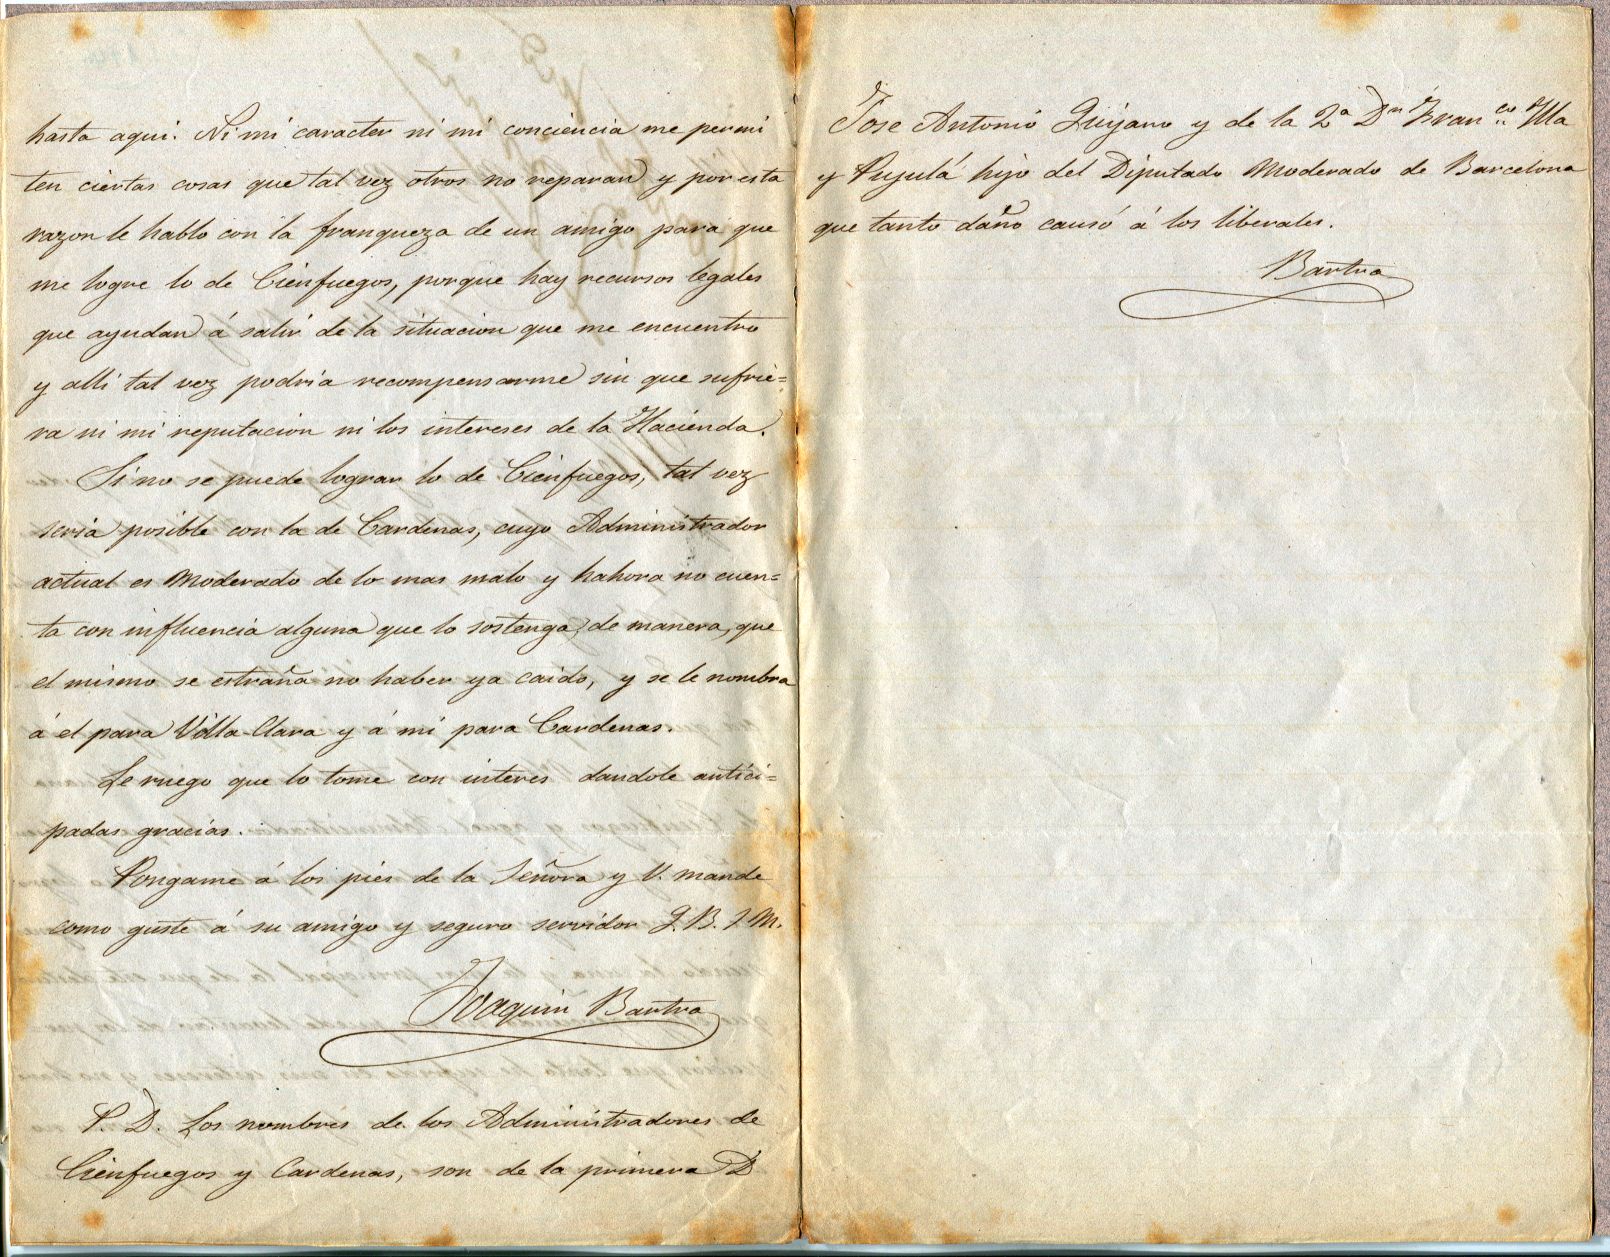 hasta aqui. Ni mi caracter ni mi conciencia me permi
ten ciertas cosas que tal vez otros no reparan y por esta
razon le hablo con la franqueza de un amigo para que
me logre lo de Cienfuegos, porque hay recursos legales
que ayudan á salir de la situacion que me encuentro
y alli tal vez podria recompensarme sin que sufrie=
ra ni mi reputacion ni los intereses de la Hacienda.
Si no se puede lograr lo de Cienfuegos, tal vez
seria posible con la de Cardenas, cuyo Administrador
actual es Moderado de lo mas malo y hahora no cuen=
ta con influencia alguna que lo sostenga, de manera, que
el mismo se estraña no haber ya caido, y se le nombra
á el para Villa-Clara y á mi para Cardenas.
Le ruego que lo tome con interes dandole antici=
padas gracias.
Pongame á los pies de la Señora y V. mande
como guste á su amigo y seguro servidor Q. B. S. M.
Joaquin Bartra
P. D. Los nombres de los Administradores de
Cienfuegos y Cardenas, son de la primera D
Jose Antonio Quijano y de la 2ª Dn Franco Illa
y Pujulá hijo del Diputado Moderado de Barcelona
que tanto daño causó á los liberales.
Bartra